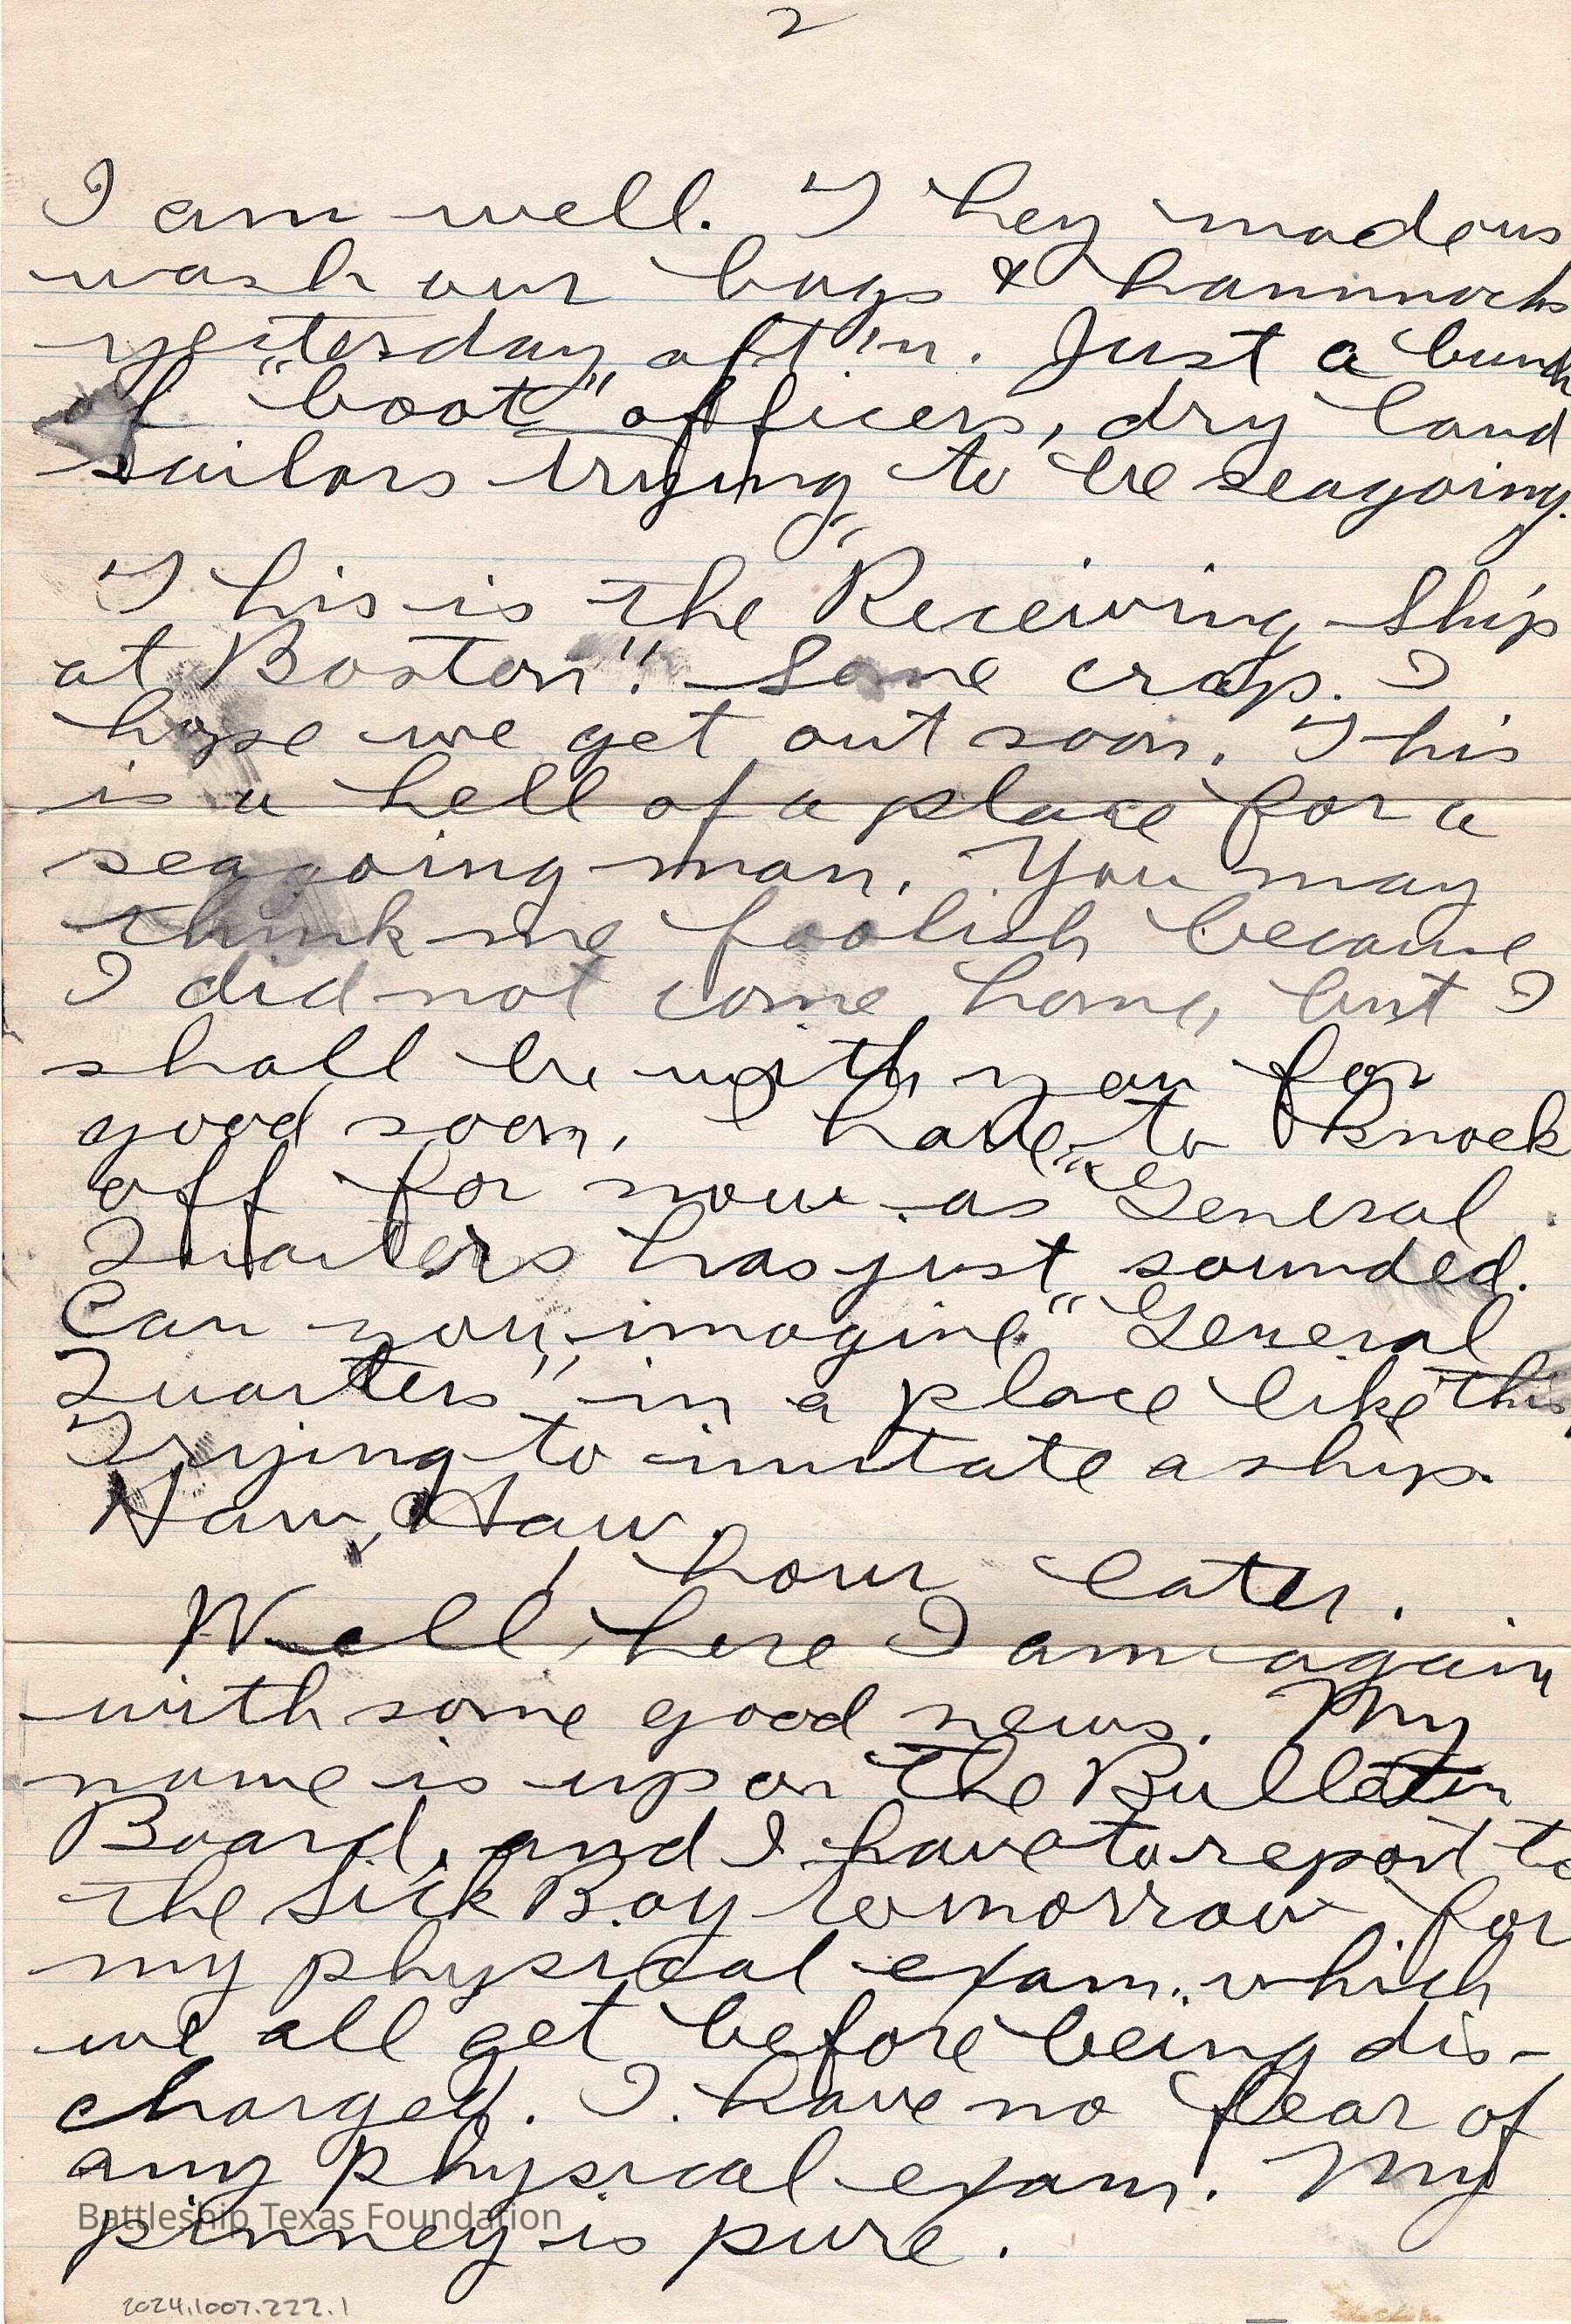 2
I am well. They made us
wash our bags & hammocks
yesterday aft'n. Just a bunch
of "boot" officers, dry land
sailors trying to be seagoing.
"This is the Receiving Ship
at Boston". Some crap. I
hope we get out soon. This
is a hell of a place for a
seagoing man. You may
think me foolish because
I did not come home, but I
shall be with you for
good soon. I have to knock
off for now as "General
Quarters has just sounded.
Can you imagine "General
Quarters" in a place like this,
Trying to imitate a ship.
Haw, Haw.
1 hour later.
Well, here I am again
with some good news. My
name is up on the Bulletin
Board, and I have to report to
the Sick Bay tomorrow for
my physical exam. which
we all get before being dis-
charged. I have no fear of
any physical exam. My
pinney is pure.
Battleship Texas Foundation
2024.1007.222.1